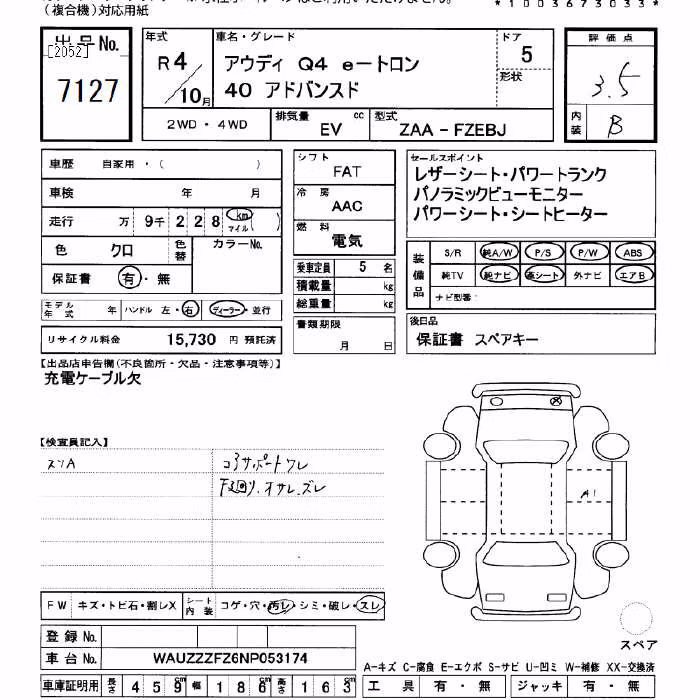 (複合機)対応用紙
*1003673033*
出品No.
[2052]
7127
年式
R4/10月
車名・グレード
アウディ Q4 e-トロン
40 アドバンスド
ドア
5
形状
評価点
3.5
内装
B
2WD・4WD
排気量
EV
cc
型式
ZAA-FZEBJ
車歴 自家用・( )
車検 年 月
走行 万 9千 2 2 8 km マイル( )
色 クロ
色替
カラーNo.
保証書 有・無
モデル年式 年
ハンドル 左・右
ディーラー・並行
リサイクル料金 15,730 円 預託済
シフト
FAT
冷房
AAC
燃料
電気
乗車定員 5 名
積載量 kg
総重量 kg
書類期限
月 日
セールスポイント
レザーシート・パワートランク
パノラミックビューモニター
パワーシート・シートヒーター
装備品
S/R 純A/W P/S P/W ABS
純TV 純ナビ 革シート 外ナビ エアB
ナビ型番:
後日品
保証書 スペアキー
【出品店申告欄(不良箇所・欠品・注意事項等)】
充電ケーブル欠
【検査員記入】
スソA
コアサポートワレ
F下回り.オサレ.ズレ
A1
FW キズ・トビ石・割レX
シート内装 コゲ・穴・汚レ・シミ・破レ・スレ
登録No.
車台No. WAUZZZFZ6NP053174
車庫証明用 長さ 4 5 9 cm 幅 1 8 6 cm 高さ 1 6 3 cm
スペア
A-キズ C-腐食 E-エクボ S-サビ U-凹ミ W-補修 XX-交換済
工具 有・無 ジャッキ 有・無